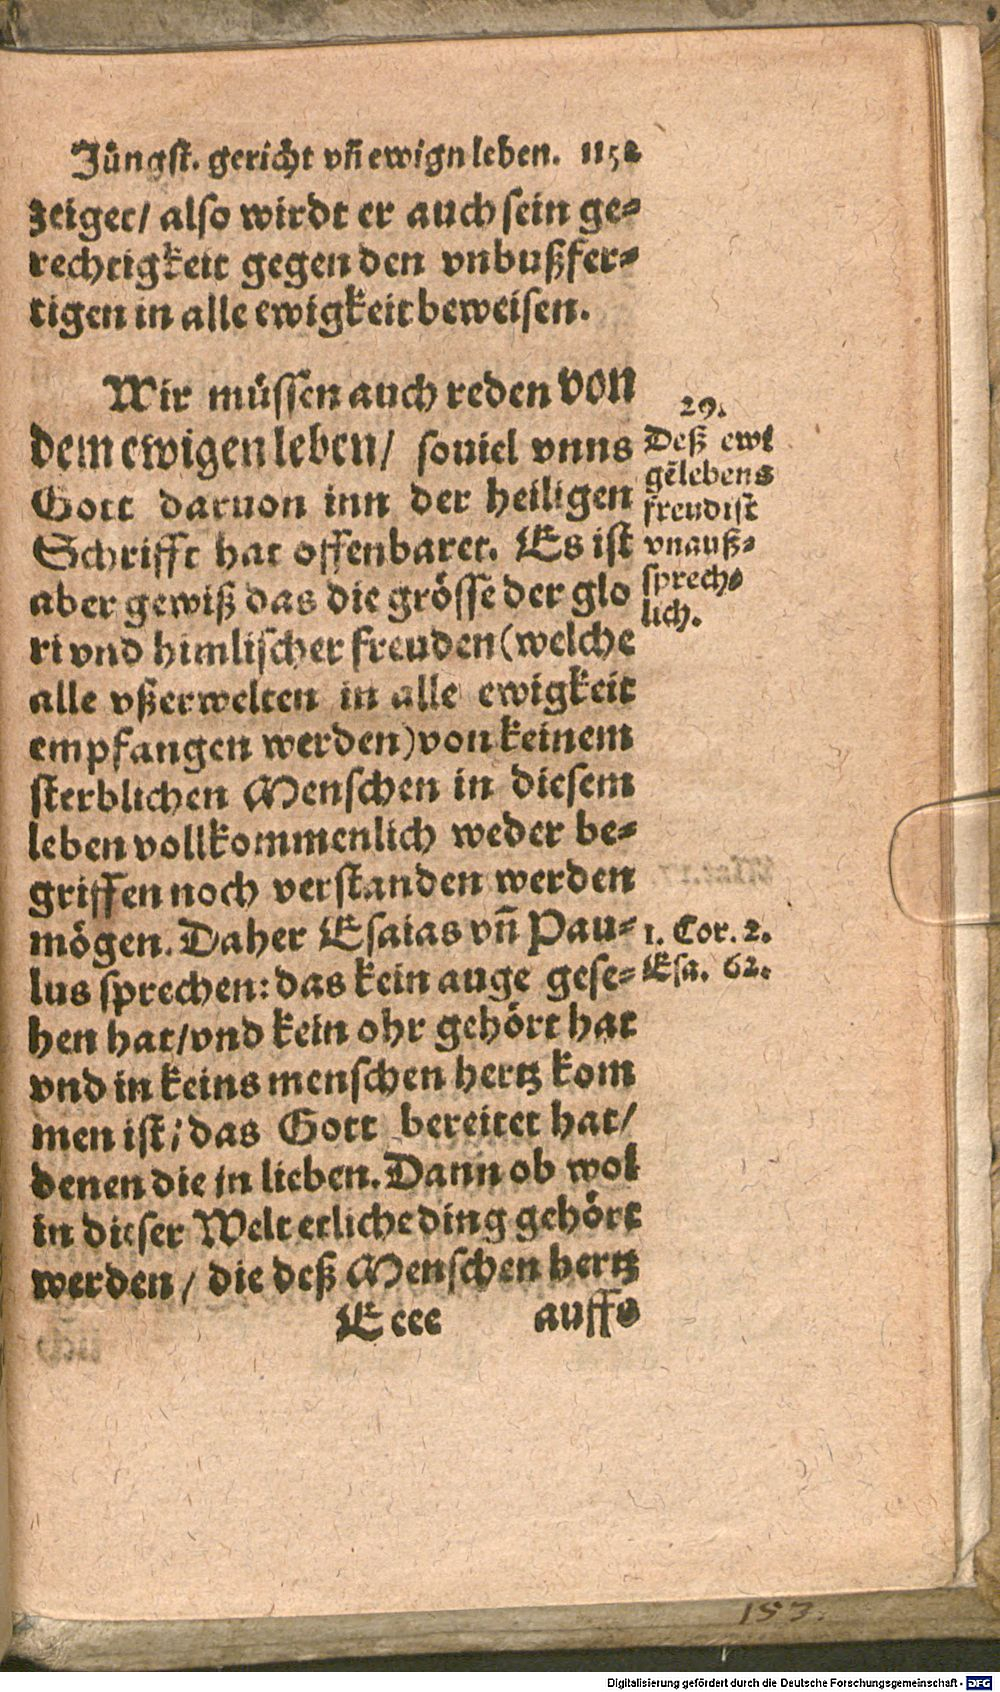 Jüngst. gericht vñ ewign leben. 1152
zeiget/ also wirdt er auch sein ge-
rechtigkeit gegen den vnbußfer-
tigen in alle ewigkeit beweisen.
Wir müssen auch reden von
dem ewigen leben/ souiel vnns
Gott daruon inn der heiligen
Schrifft hat offenbaret. Es ist
aber gewiß das die grösse der glo
ri vnd himlischer freuden (welche
alle vßerwelten in alle ewigkeit
empfangen werden) von keinem
sterblichen Menschen in diesem
leben vollkommenlich weder be-
griffen noch verstanden werden
mögen. Daher Esaias vñ Pau-
lus sprechen: das kein auge gese-
hen hat/ vnd kein ohr gehört hat
vnd in keins menschen hertz kom
men ist/ das Gott bereitet hat/
denen die in lieben. Dann ob wol
in dieser Welt etliche ding gehört
werden/ die deß Menschen hertz
Eeee auffs
29.
Deß ewi
gẽ lebens
freud ist
vnauß-
sprech-
lich.
1. Cor. 2.
Esa. 62.
153.
Digitalisierung gefördert durch die Deutsche Forschungsgemeinschaft - DFG